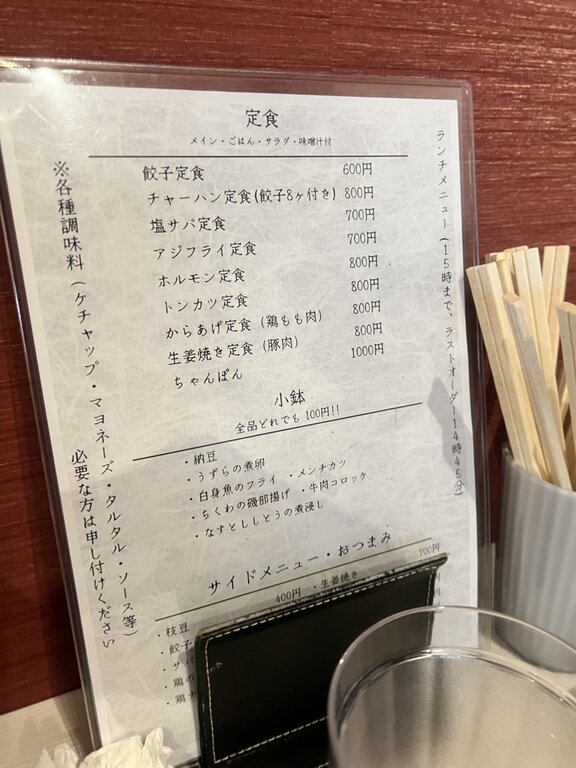 ランチメニュー(15時まで、ラストオーダー14時45分)
定食
メイン・ごはん・サラダ・味噌汁付
餃子定食 600円
チャーハン定食(餃子8ヶ付き) 800円
塩サバ定食 700円
アジフライ定食 700円
ホルモン定食 800円
トンカツ定食 800円
からあげ定食(鶏もも肉) 800円
生姜焼き定食(豚肉) 800円
ちゃんぽん 1000円
小鉢
全品どれでも 100円!!
・納豆
・うずらの煮卵
・白身魚のフライ ・メンチカツ
・ちくわの磯部揚げ ・牛肉コロッケ
・なすとししとうの煮浸し
サイドメニュー・おつまみ
・枝豆 400円 ・生姜焼き 700円
・餃子
・サバ
・鶏の
・鶏
※各種調味料(ケチャップ・マヨネーズ・タルタル・ソース等)
必要な方は申し付けください